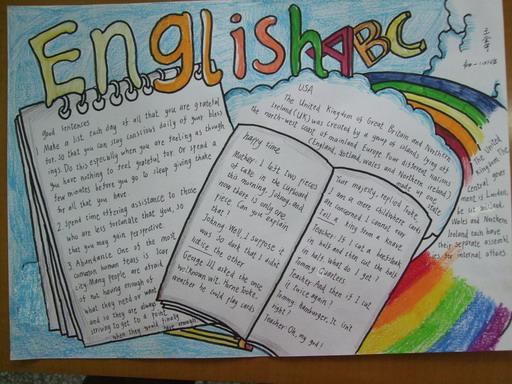 English ABC
good sentences
1 Make a list each day of all that you are grateful
for, so that you can stay conscious daily of your bless
ings. Do this especially when you are feeling as though
you have nothing to feel grateful for. Or spend a
few minutes before you go to sleep giving thanks
for all that you have
2 Spend time offering assistance to those
who are less fortunate than you, so
that you may gain perspective.
3 Abundance One of the most
common human fears is scar
city. Many people are afraid
of not having enough of
what they need or want
and so they are always
striving to get to a point
when they would finally
have enough
happy time
Mother: I left two pieces
of cake in the cupboard
this morning, Johnny. And
now there is only one
piece. Can you explain
that?
Johnny: Well, I suppose it
was so dark that I didn't
notice the other
George III asked the one
wit
whether he could play cards
Your majesty, replied Tooke,
I am a more child where cards
are concerned I cannot even
tell a king from a knave.
Teacher: If I cut a beefsteak
in half and then cut the half
in half, what do I get?
Tommy: Quarters
Teacher: And then if I cut
it twice again?
Tommy: Hamburger, It isn't
right?
Teacher: Oh, my god!
USA
The United Kingdom of Great Britain and Northern
Ireland (UK) was created by a group of islands lying off
the north-west coast of mainland Europe. Four different nations
(England, Scotland, Wales and Northern Ireland)
made one
state
The United
Kingdom's
Central gover
ment is London,
Wales and Northern
Ireland each have
their separate assembl
ies for internal affairs